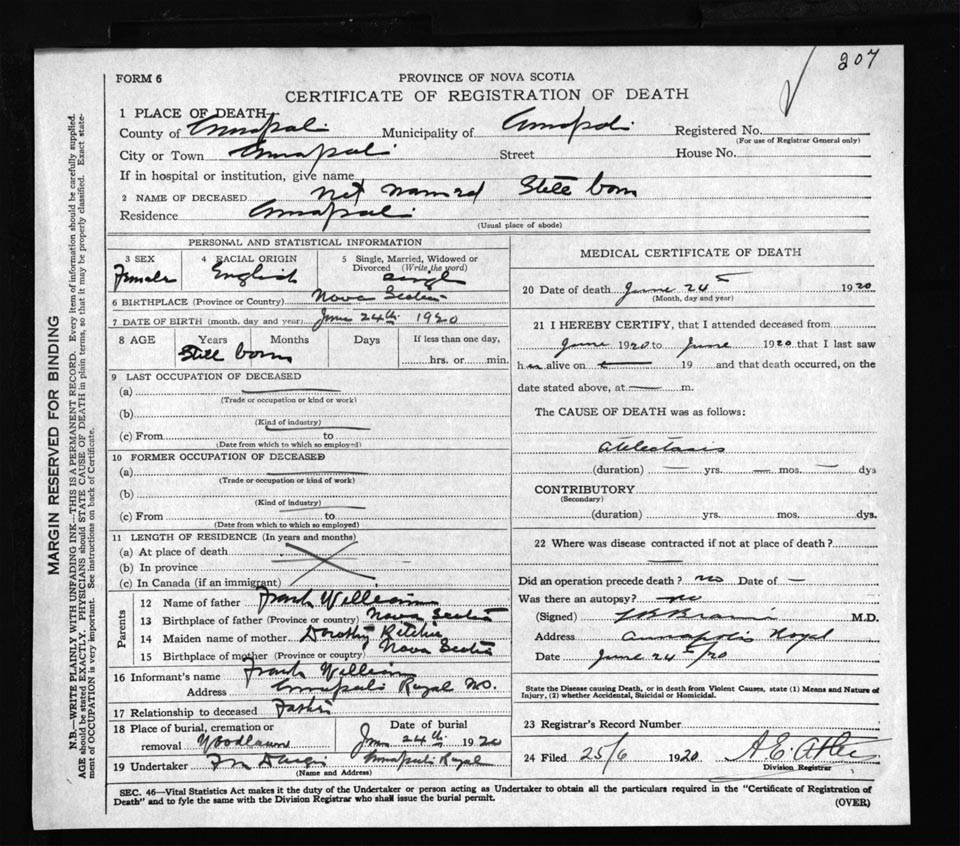 207
FORM 6
PROVINCE OF NOVA SCOTIA
CERTIFICATE OF REGISTRATION OF DEATH
1 PLACE OF DEATH
County of Annapolis Municipality of Annapolis Registered No.
(For use of Registrar General only)
City or Town Annapolis Street House No.
If in hospital or institution, give name
2 NAME OF DECEASED Not named Still born
Residence Annapolis
(Usual place of abode)
PERSONAL AND STATISTICAL INFORMATION
3 SEX 4 RACIAL ORIGIN 5 Single, Married, Widowed or Divorced (Write the word)
Female English Single
6 BIRTHPLACE (Province or Country) Nova Scotia
7 DATE OF BIRTH (month, day and year) June 24th 1920
8 AGE Years Months Days If less than one day,
Still born hrs. or min.
9 LAST OCCUPATION OF DECEASED
(a)
(Trade or occupation or kind or work)
(b)
(Kind of industry)
(c) From to
(Date from which to which so employed)
10 FORMER OCCUPATION OF DECEASED
(a)
(Trade or occupation or kind of work)
(b)
(Kind of industry)
(c) From to
(Date from which to which so employed)
11 LENGTH OF RESIDENCE (In years and months)
(a) At place of death
(b) In province
(c) In Canada (if an immigrant)
Parents
12 Name of father Frank Williams
13 Birthplace of father (Province or country) Nova Scotia
14 Maiden name of mother Dorothy Ritchie
15 Birthplace of mother (Province or country) Nova Scotia
16 Informant's name Frank Williams
Address Annapolis Royal N.S.
17 Relationship to deceased Father
18 Place of burial, cremation or Date of burial
removal Woodlawn June 24th 1920
19 Undertaker Annapolis Royal
(Name and Address)
MEDICAL CERTIFICATE OF DEATH
20 Date of death June 24 1920
(Month, day and year)
21 I HEREBY CERTIFY, that I attended deceased from
June 1920 to June 1920 that I last saw
h er alive on 19 and that death occurred, on the
date stated above, at m.
The CAUSE OF DEATH was as follows:
Atelectasis
(duration) yrs. mos. dys
CONTRIBUTORY
(Secondary)
(duration) yrs. mos. dys.
22 Where was disease contracted if not at place of death?
Did an operation precede death? no Date of
Was there an autopsy? no
(Signed) M.D.
Address Annapolis Royal
Date June 24/20
State the Disease causing Death, or in death from Violent Causes, state (1) Means and Nature of
Injury, (2) whether Accidental, Suicidal or Homicidal.
23 Registrar's Record Number
24 Filed 25/6 1920 A.E. Atlee
Division Registrar
SEC. 46—Vital Statistics Act makes it the duty of the Undertaker or person acting as Undertaker to obtain all the particulars required in the "Certificate of Registration of
Death" and to fyle the same with the Division Registrar who shall issue the burial permit.
(OVER)
MARGIN RESERVED FOR BINDING
N.B.—WRITE PLAINLY WITH UNFADING INK—THIS IS A PERMANENT RECORD. Every item of information should be carefully supplied.
AGE should be stated EXACTLY. PHYSICIANS should STATE CAUSE OF DEATH in plain terms, so that it may be properly classified. Exact state-
ment of OCCUPATION is very important. See instructions on back of Certificate.